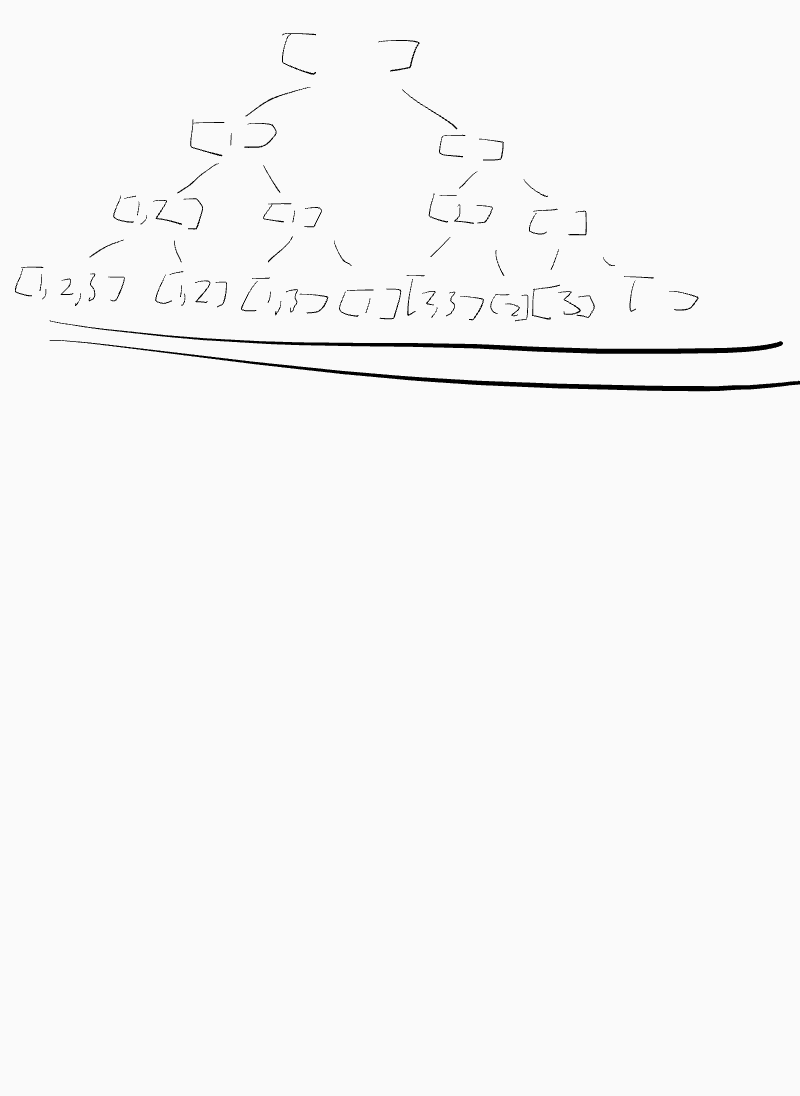 [ ]
[1] [ ]
[1,2] [1] [2] [ ]
[1,2,3] [1,2] [1,3] [1] [2,3] [2] [3] [ ]